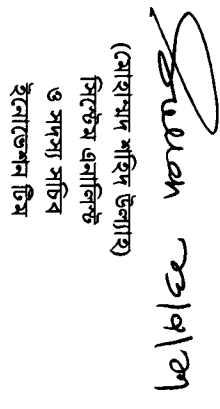 (মোহাম্মদ শহিদ উল্যাহ)
সিস্টেম এনালিস্ট
ও সদস্য সচিব
ইনোভেশন টিম